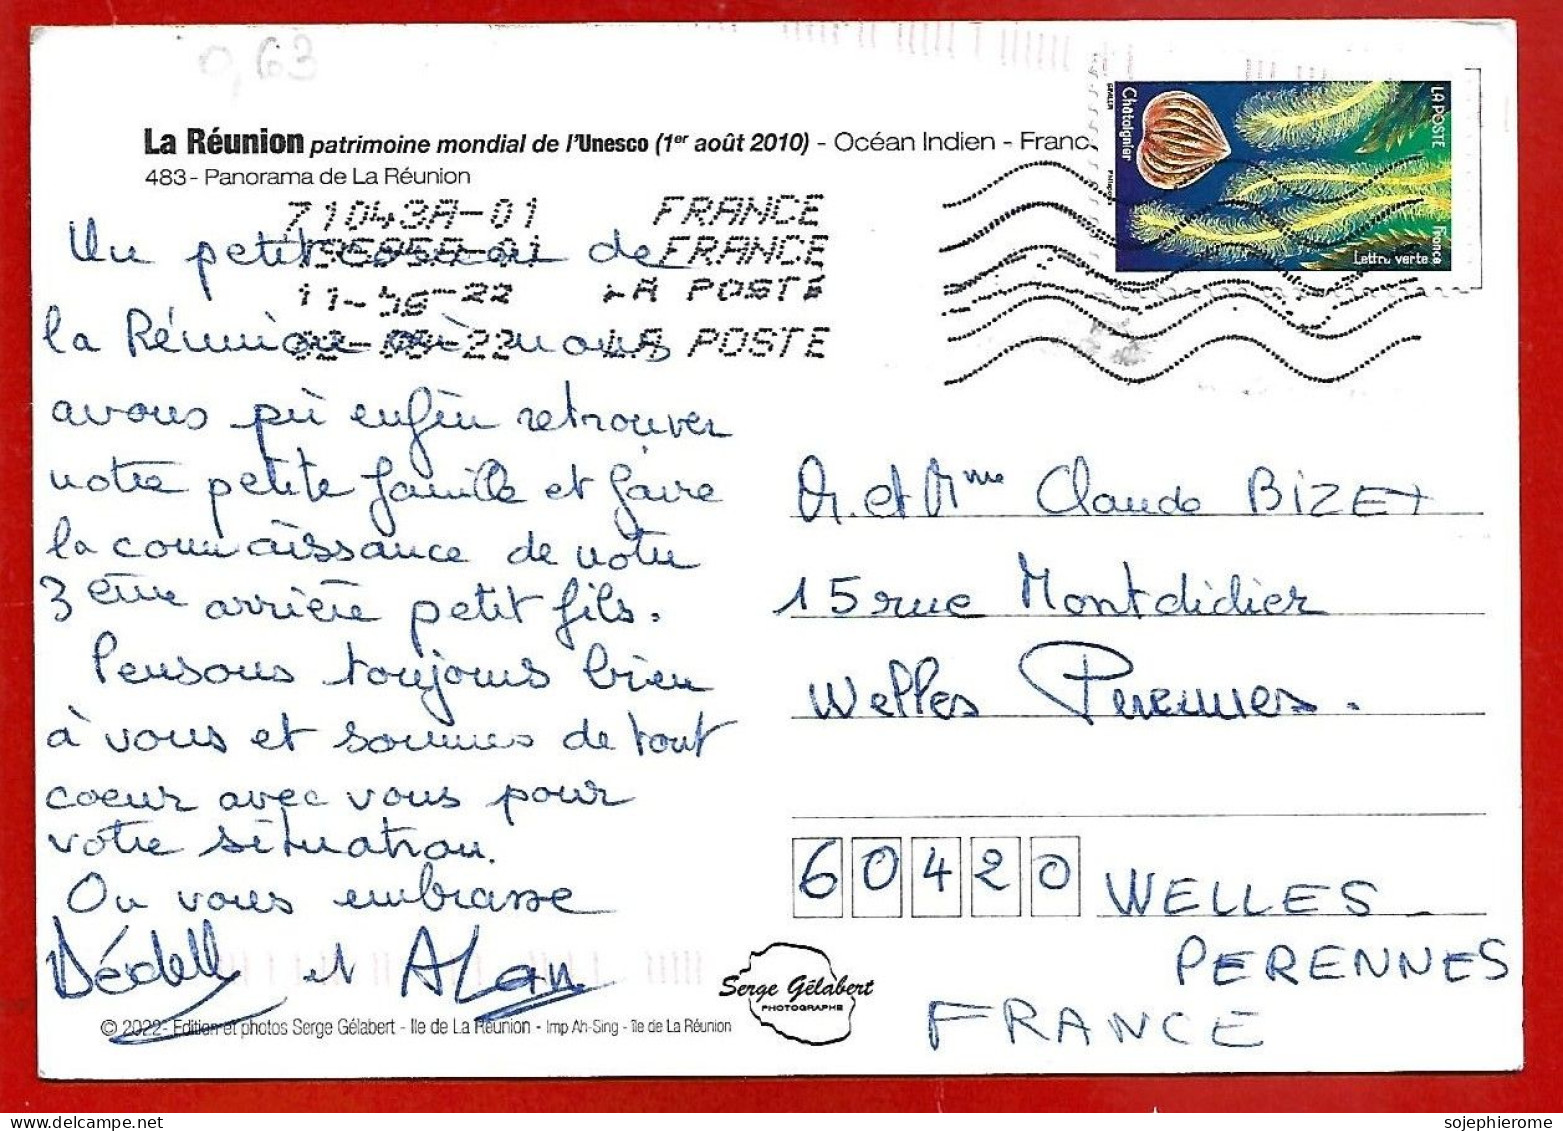 0,63
La Réunion patrimoine mondial de l'Unesco (1er août 2010) - Océan Indien - Franc
483 - Panorama de La Réunion
71043A-01 FRANCE
FRANCE
11- -22 LA POSTE
02-09-22 LA POSTE
LA POSTE
Châtaignier
France
Lettre verte
Un petit coucou de
la Réunion où nous
avons pû enfin retrouver
notre petite famille et faire
la connaissance de notre
3ème arrière petit fils.
Pensons toujours bien
à vous et sommes de tout
coeur avec vous pour
votre situation.
On vous embrasse
et ALan
Mr. et Mme Claude BIZET
15 rue Montdidier
Welles Perennes.
60420 WELLES -
PERENNES
FRANCE
Serge Gélabert
PHOTOGRAPHE
© 2022- Edition et photos Serge Gélabert - Ile de La Réunion - Imp Ah-Sing - île de La Réunion
sojephierome